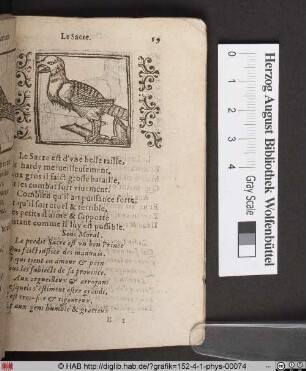 Le Sacre.
59
Le Sacre est d'vne belle taille,
hardy merueilleusement,
aux gros il faict grosse bataille,
les combat fort viuement.
Combien qu'il ait puissance forte,
qu'il soit cruel & terrible,
petits il aime & supporte
autant comme il luy est possible.
Sens Moral.
Le predit Sacre est vn bon Prince
Qui faict iustice des mauuais.
qui tient en amour & paix
les subiects de sa prouince.
Aux orgueilleux & arrogans
esquels s'estiment estre grands,
est tres-fier & rigoureux,
aux gens humble & gratieux
H
Herzog August Bibliothek Wolfenbüttel
Gray Scale
0
1
2
3
4
5
© HAB http://diglib.hab.de/?grafik=152-4-1-phys-00074